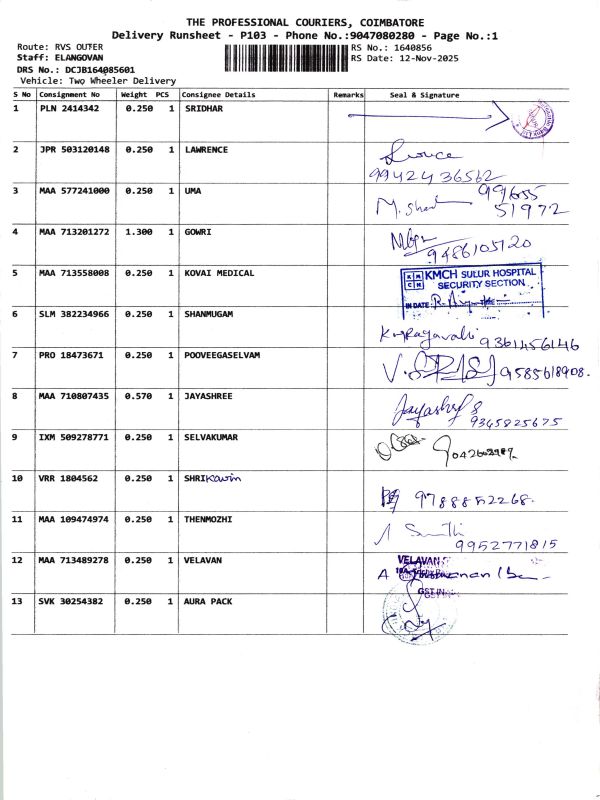 THE PROFESSIONAL COURIERS, COIMBATORE
Delivery Runsheet - P103 - Phone No.:9047080280 - Page No.:1
Route: RVS OUTER RS No.: 1640856
Staff: ELANGOVAN RS Date: 12-Nov-2025
DRS No.: DCJB164085601
Vehicle: Two Wheeler Delivery
S No Consignment No Weight PCS Consignee Details Remarks Seal & Signature
1 PLN 2414342 0.250 1 SRIDHAR
2 JPR 503120148 0.250 1 LAWRENCE
9942436562
3 MAA 577241000 0.250 1 UMA
M. 99655
51972
4 MAA 713201272 1.300 1 GOWRI
9486105720
5 MAA 713558008 0.250 1 KOVAI MEDICAL
KMCH SULUR HOSPITAL
SECURITY SECTION
IN DATE
6 SLM 382234966 0.250 1 SHANMUGAM
9361456146
7 PRO 18473671 0.250 1 POOVEEGASELVAM
9585618908.
8 MAA 710807435 0.570 1 JAYASHREE
Jayashree S
9345825675
9 IXM 509278771 0.250 1 SELVAKUMAR
10 VRR 1804562 0.250 1 SHRI Kavin
9788852268.
11 MAA 109474974 0.250 1 THENMOZHI
9952771815
12 MAA 713489278 0.250 1 VELAVAN
VELAVAN
GSTIN
13 SVK 30254382 0.250 1 AURA PACK